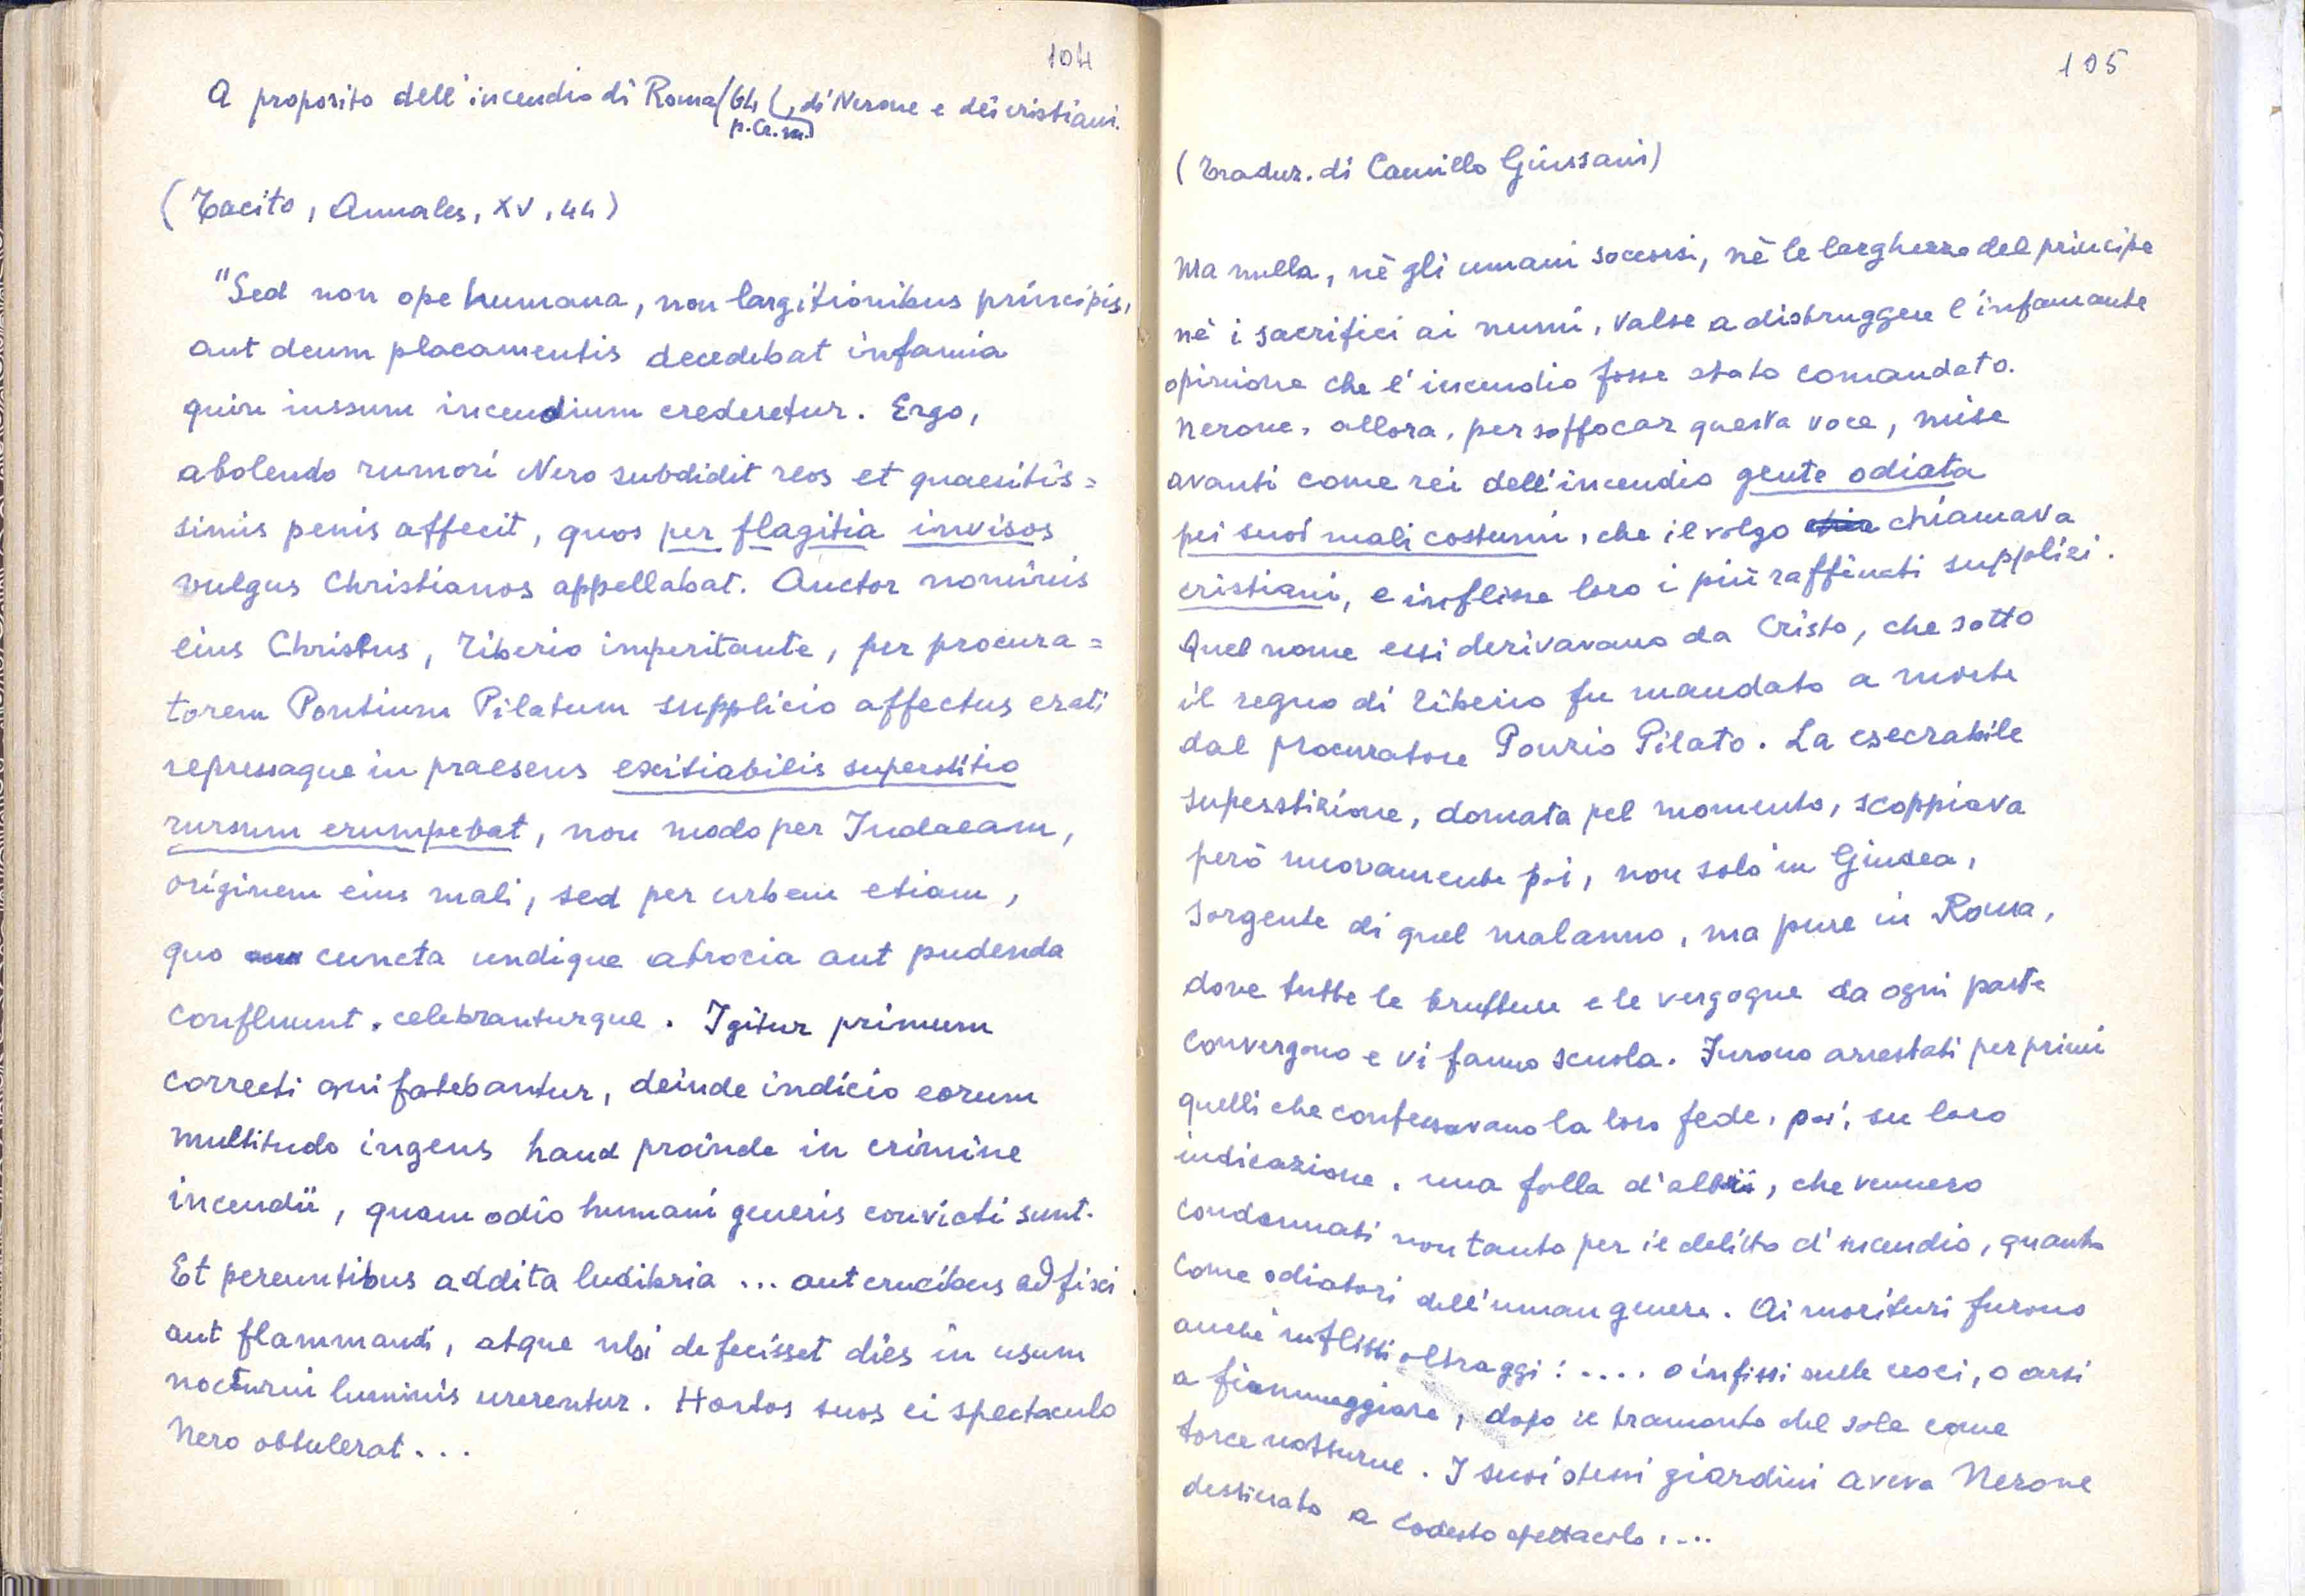 104
A proposito dell'incendio di Roma (64 p.C.m.), di Nerone e dei cristiani.
(Tacito, Annales, XV, 44)
"Sed non ope humana, non largitionibus principis,
aut deum placamentis decedebat infamia
quin iussum incendium crederetur. Ergo,
abolendo rumori Nero subdidit reos et quaesitis=
simis penis affecit, quos per flagitia invisos
vulgus Christianos appellabat. Auctor nominis
eius Christus, Tiberio imperitante, per procura=
torem Pontium Pilatum supplicio affectus erat;
repressaque in praesens exitiabilis superstitio
rursum erumpebat, non modo per Iudaeam,
originem eius mali, sed per urbem etiam,
quo cuncta undique atrocia aut pudenda
confluunt. celebranturque. Igitur primum
correcti qui fatebantur, deinde indicio eorum
multitudo ingens haud proinde in crimine
incendii, quam odio humani generis convicti sunt.
Et pereuntibus addita ludibria ... aut crucibus adfixi
aut flammandi, atque ubi defecisset dies in usum
nocturni luminis urerentur. Hortos suos ei spectaculo
Nero obtulerat...
105
(Traduz. di Camillo Giussani)
Ma nulla, nè gli umani soccorsi, nè le larghezze del principe
nè i sacrifici ai numi, valse a distruggere l'infamante
opinione che l'incendio fosse stato comandato.
Nerone, allora, per soffocar questa voce, mise
avanti come rei dell'incendio gente odiata
pei suoi mali costumi, che il volgo chiamava
cristiani, e inflisse loro i più raffinati supplizi.
Quel nome essi derivavano da Cristo, che sotto
il regno di Tiberio fu mandato a morte
dal procuratore Ponzio Pilato. La esecrabile
superstizione, domata pel momento, scoppiava
però nuovamente poi, non solo in Giudea,
sorgente di quel malanno, ma pure in Roma,
dove tutte le brutture e le vergogne da ogni parte
convergono e vi fanno scuola. Furono arrestati per primi
quelli che confessavano la loro fede, poi, su loro
indicazione, una folla d'altri, che vennero
condannati non tanto per il delitto d'incendio, quanto
come odiatori dell'uman genere. Ai morituri furono
anche inflitti oltraggi: .... o infissi sulle croci, o arsi
a fiammeggiare, dopo il tramonto del sole come
torce notturne. I suoi stessi giardini aveva Nerone
destinato a codesto spettacolo, ....